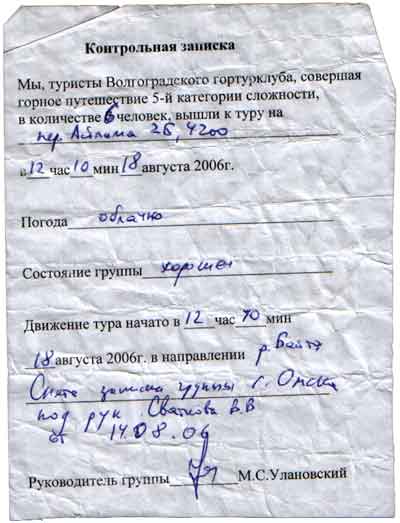 Контрольная записка
Мы, туристы Волгоградского гортурклуба, совершая
горное путешествие 5-й категории сложности,
в количестве 6 человек, вышли к туру на
пер. Айлама 2Б, 4200
в 12 час 10 мин 18 августа 2006г.
Погода облачно
Состояние группы хорошее
Движение тура начато в 12 час 40 мин
18 августа 2006г. в направлении р.
Снята записка группы г. Омска
под рук Сваткова В.В
от 14.08.06
Руководитель группы М.С.Улановский